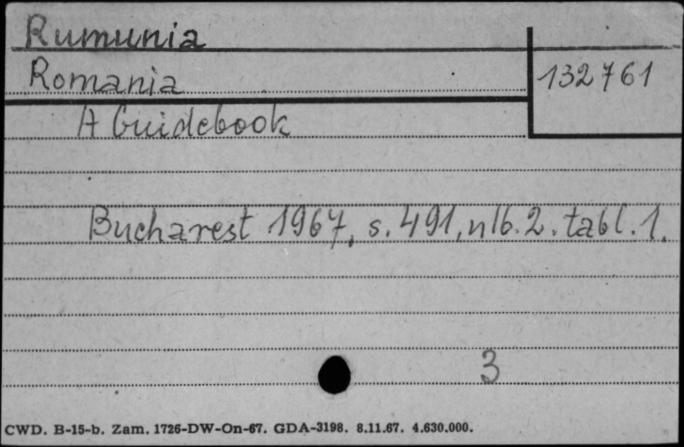 Rumunia
Romania
132761
A Guidebook
Bucharest 1967, s. 491, nlb. 2. tabl. 1.
3
CWD. B-15-b. Zam. 1726-DW-On-67. GDA-3198. 8.11.67. 4.630.000.